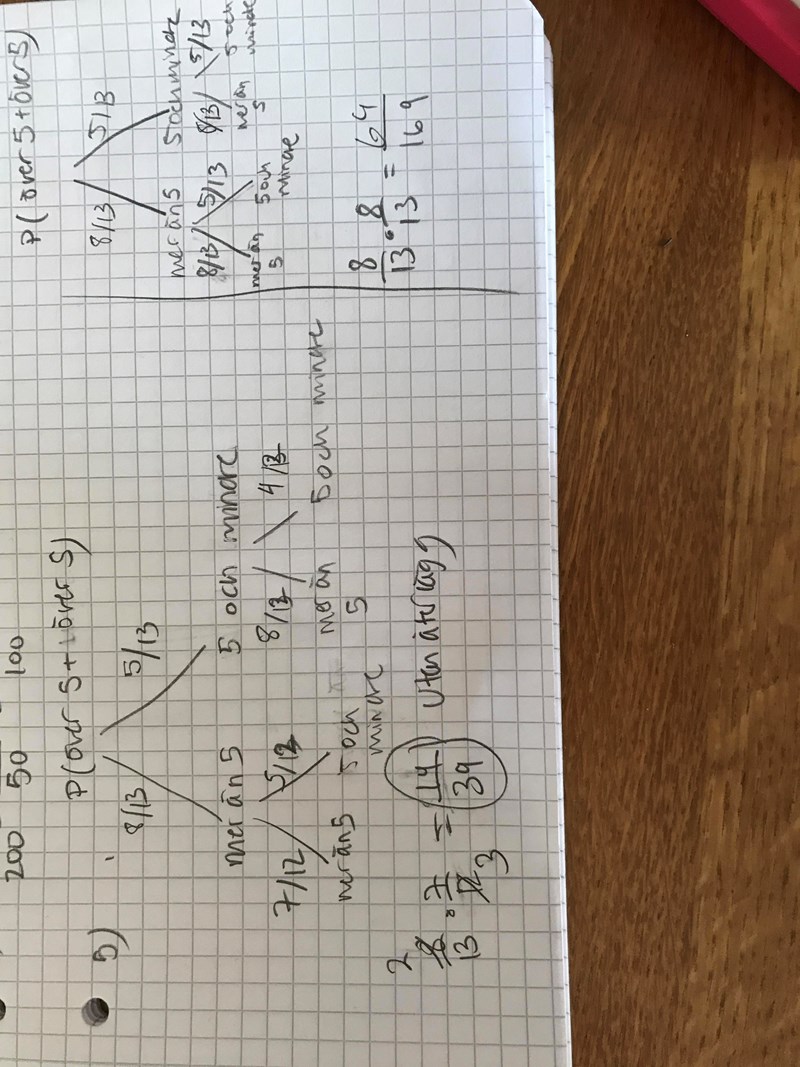 200 50 100
5)
P(över 5+över 5)
8/13 5/13
mer än 5 5 och mindre
7/12 5/12 8/12 4/12
mer än 5 5 och mindre mer än 5 5 och mindre
8/13 · 7/12 = 14/39 utan återlägg
2 3
P(över 5+över 5)
8/13 5/13
mer än 5 5 och mindre
8/13 5/13 8/13 5/13
mer än 5 5 och mindre mer än 5 5 och mindre
8/13 · 8/13 = 64/169